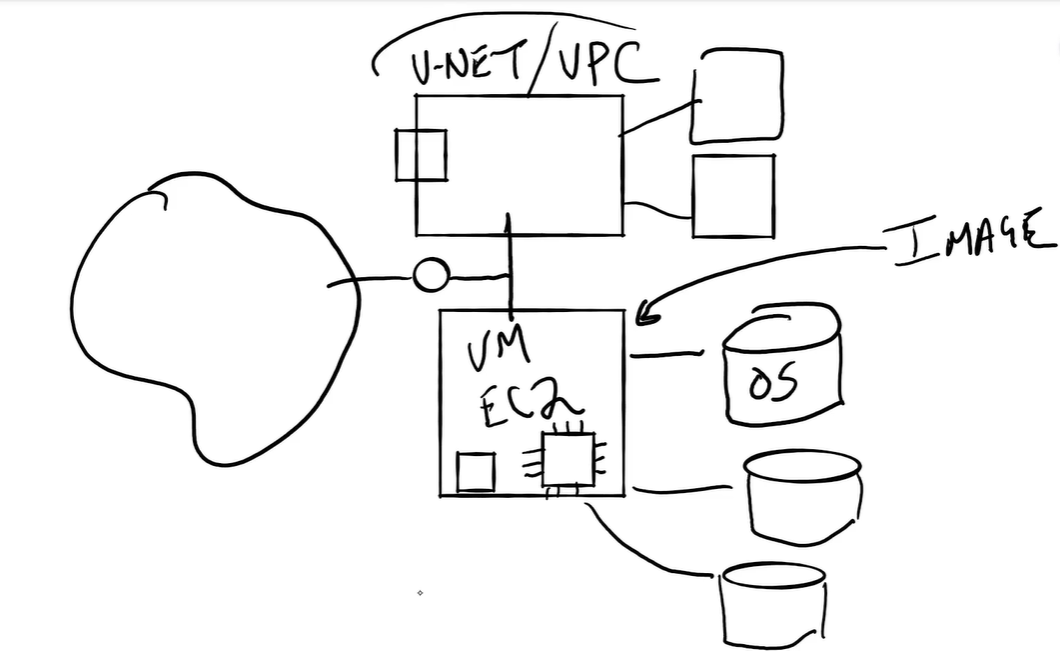 V-NET/VPC
IMAGE
VM
EC2
OS